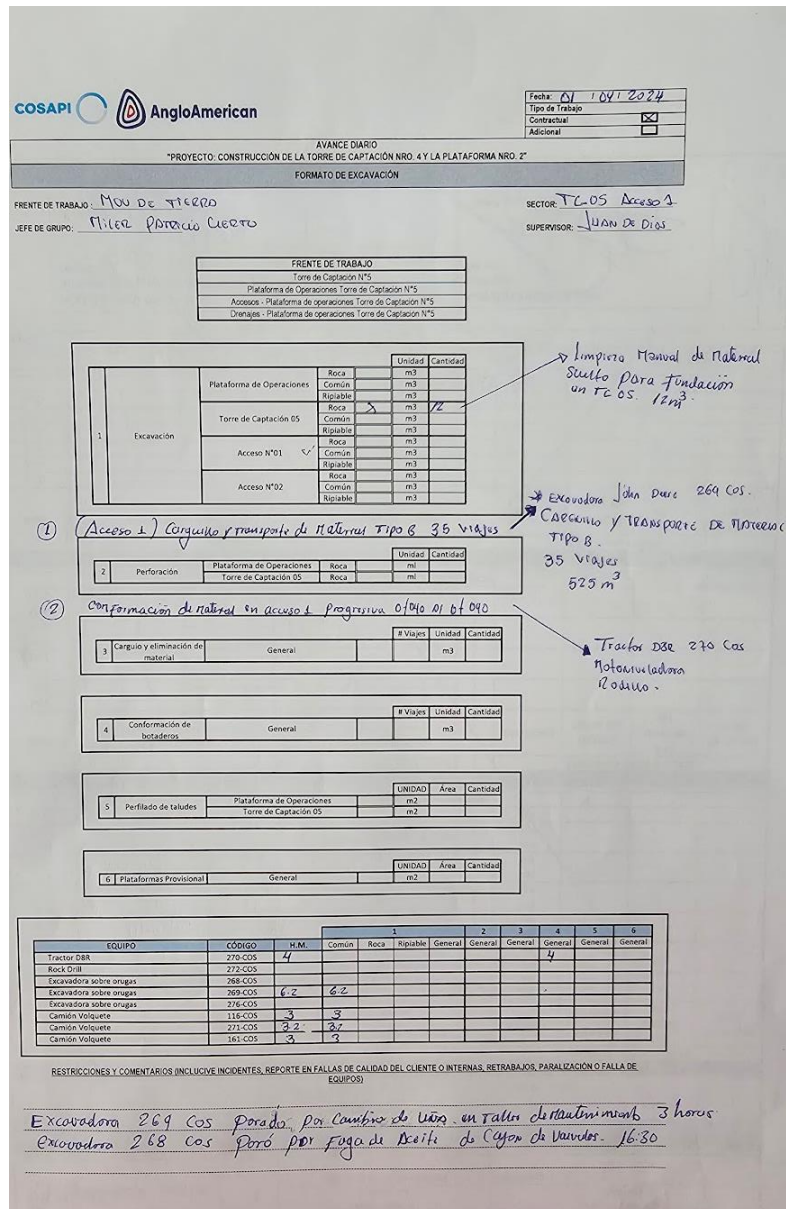 COSAPI AngloAmerican
Fecha: 01 / 04 / 2024
Tipo de Trabajo
Contractual X
Adicional
AVANCE DIARIO
"PROYECTO: CONSTRUCCIÓN DE LA TORRE DE CAPTACIÓN NRO. 4 Y LA PLATAFORMA NRO. 2"
FORMATO DE EXCAVACIÓN
FRENTE DE TRABAJO: MOV DE TIERRA
SECTOR: TC-05 Acceso 1
JEFE DE GRUPO: MILER PATRICIO CIERTO
SUPERVISOR: JUAN DE DIOS
FRENTE DE TRABAJO
Torre de Captación N°5
Plataforma de Operaciones Torre de Captación N°5
Accesos - Plataforma de operaciones Torre de Captación N°5
Drenajes - Plataforma de operaciones Torre de Captación N°5
Unidad Cantidad
1 Excavación
Plataforma de Operaciones Roca m3
Común m3
Ripiable m3
Torre de Captación 05 Roca m3 12
Común m3
Ripiable m3
Acceso N°01 Roca m3
Común m3
Ripiable m3
Acceso N°02 Roca m3
Común m3
Ripiable m3
Limpieza Manual de Material
Suelto para Fundación
en TC 05. 12m3.
Excavadora John Deere 269 Cos.
CARGUILLO Y TRANSPORTE DE MATERIAL
TIPO B.
35 viajes
525 m3
1 (Acceso 1) Carguillo y transporte de Material Tipo B 35 viajes
Unidad Cantidad
2 Perforación Plataforma de Operaciones Roca ml
Torre de Captación 05 Roca ml
2 Conformación de material en acceso 1 Progresiva 0+040 Al 0+090
Tractor D8R 270 Cos
Motoniveladora
Rodillo.
# Viajes Unidad Cantidad
3 Carguio y eliminación de material General m3
# Viajes Unidad Cantidad
4 Conformación de botaderos General m3
UNIDAD Área Cantidad
5 Perfilado de taludes Plataforma de Operaciones m2
Torre de Captación 05 m2
UNIDAD Área Cantidad
6 Plataformas Provisional General m2
1 2 3 4 5 6
EQUIPO CÓDIGO H.M. Común Roca Ripiable General General General General General General
Tractor D8R 270-COS 4 4
Rock Drill 272-COS
Excavadora sobre orugas 268-COS
Excavadora sobre orugas 269-COS 6.2 6.2
Excavadora sobre orugas 276-COS
Camión Volquete 116-COS 3 3
Camión Volquete 271-COS 3.2 3.2
Camión Volquete 161-COS 3 3
RESTRICCIONES Y COMENTARIOS (INCLUCIVE INCIDENTES, REPORTE EN FALLAS DE CALIDAD DEL CLIENTE O INTERNAS, RETRABAJOS, PARALIZACIÓN O FALLA DE
EQUIPOS)
Excavadora 269 Cos parada por Cambio de uñas en Taller de Mantenimiento 3 horas
excavadora 268 Cos paró por Fuga de Aceite de Cajon de Valvulas. 16:30